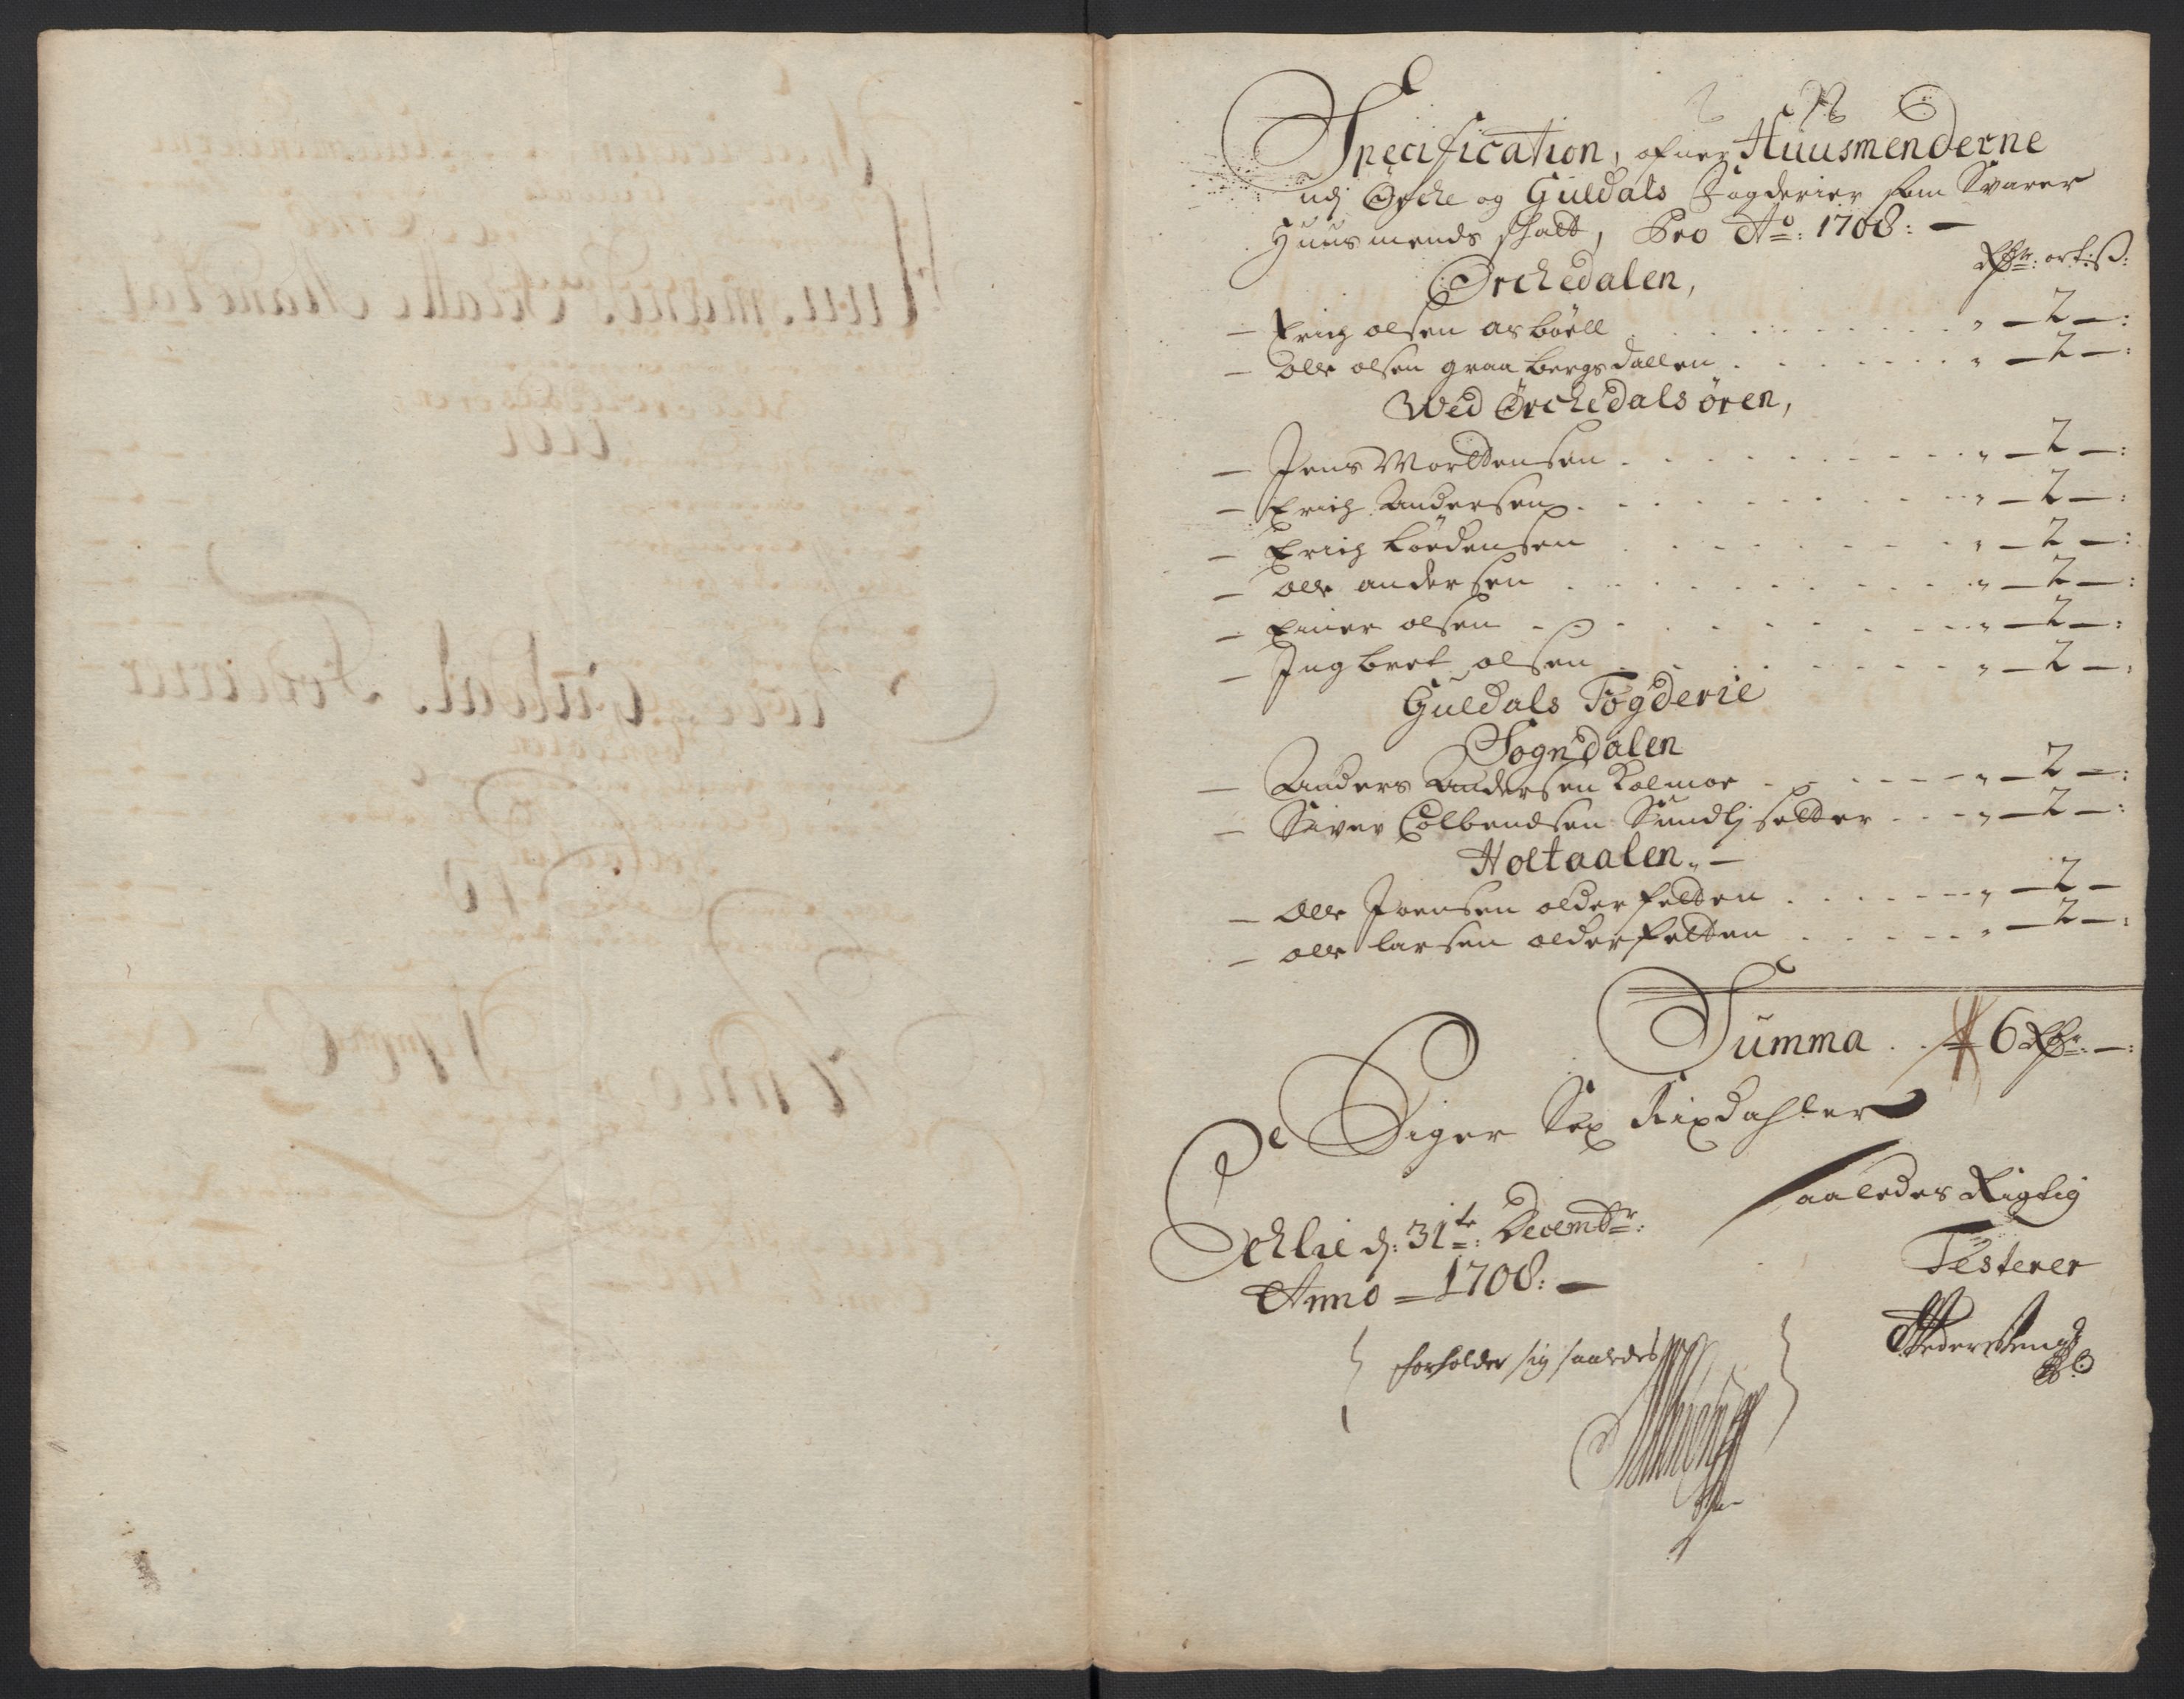 Specification, ofuer Huusmenderne
udj Orche og Guldals Fogderier som Svarer
Huusmends skatt, Pro Ao: 1708: —
Rdr: ort: ß:
Orchedalen,
— Erich olsen asbøell . . . . . . „ — 2 — :
— Olle olsen graabergsdallen . . . . . . „ — 2 — :
Wed Orchedals øren,
— Jens Morttensen . . . . . . „ — 2 — :
— Erich Andersen . . . . . . „ — 2 — :
— Erich Loedensen . . . . . . „ — 2 — :
— Olle andersen . . . . . . „ — 2 — :
— Einer olsen . . . . . . „ — 2 — :
— Ingbret olsen . . . . . . „ — 2 — :
Guldals Fogderie
Sogndalen
— Anders Andersen Kolmoe . . . . . . „ — 2 — :
— Siver Colbendsen Sundlj setter . . . „ — 2 — :
Holtaalen „ —
— Olle Joensen olderfletten . . . . . . „ — 2 —
— olle larsen olderfletten . . . . . . „ — 2 — :
Summa . . 6 Rdr: — :
Siger Sex Rixdahler
Oehlie d: 31te: Decembr:
Anno = 1708: —
Saaledes Rigtig
Testerer
forholder sig saaledes